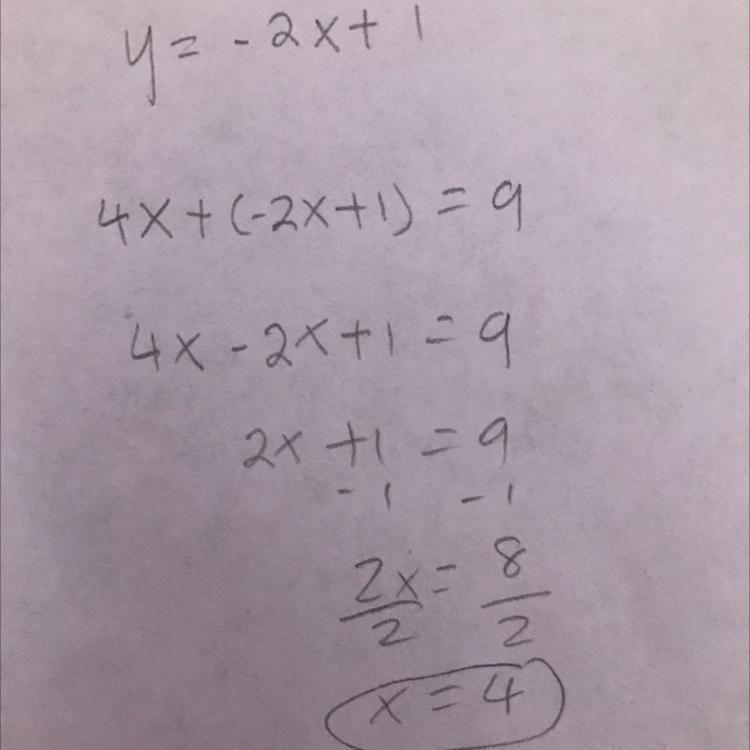 y = -2x + 1
4x + (-2x+1) = 9
4x - 2x + 1 = 9
2x + 1 = 9
- 1 - 1
2x = 8
2 2
x = 4